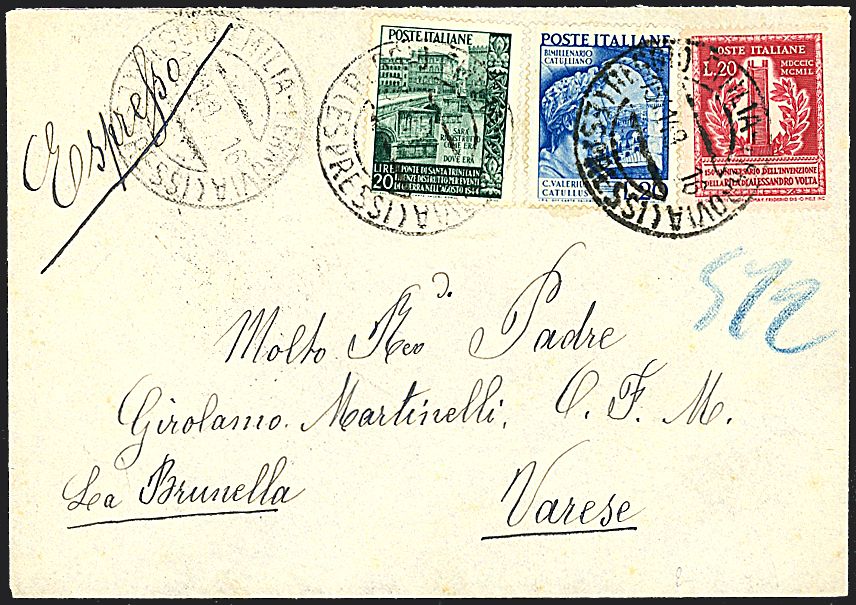 Espresso
POSTE ITALIANE
SARÀ
RICOSTRUITO
COME ERA
DOVE ERA
LIRE
20
IL PONTE DI SANTA TRINITA IN
FIRENZE DISTRUTTO PER EVENTI
DI GUERRA NELL'AGOSTO 1944
POSTE ITALIANE
BIMILLENARIO
CATULLIANO
C. VALERIUS
CATULLUS
L. 20
POSTE ITALIANE
L. 20
MDCCIC
MCMIL
150° ANNIVERSARIO DELL'INVENZIONE
DELLA PILA DI ALESSANDRO VOLTA
REGGIO EMILIA FERROVIA (ESPRESSI)
522
Molto Revd. Padre
Girolamo Martinelli, O. F. M.
La Brunella
Varese